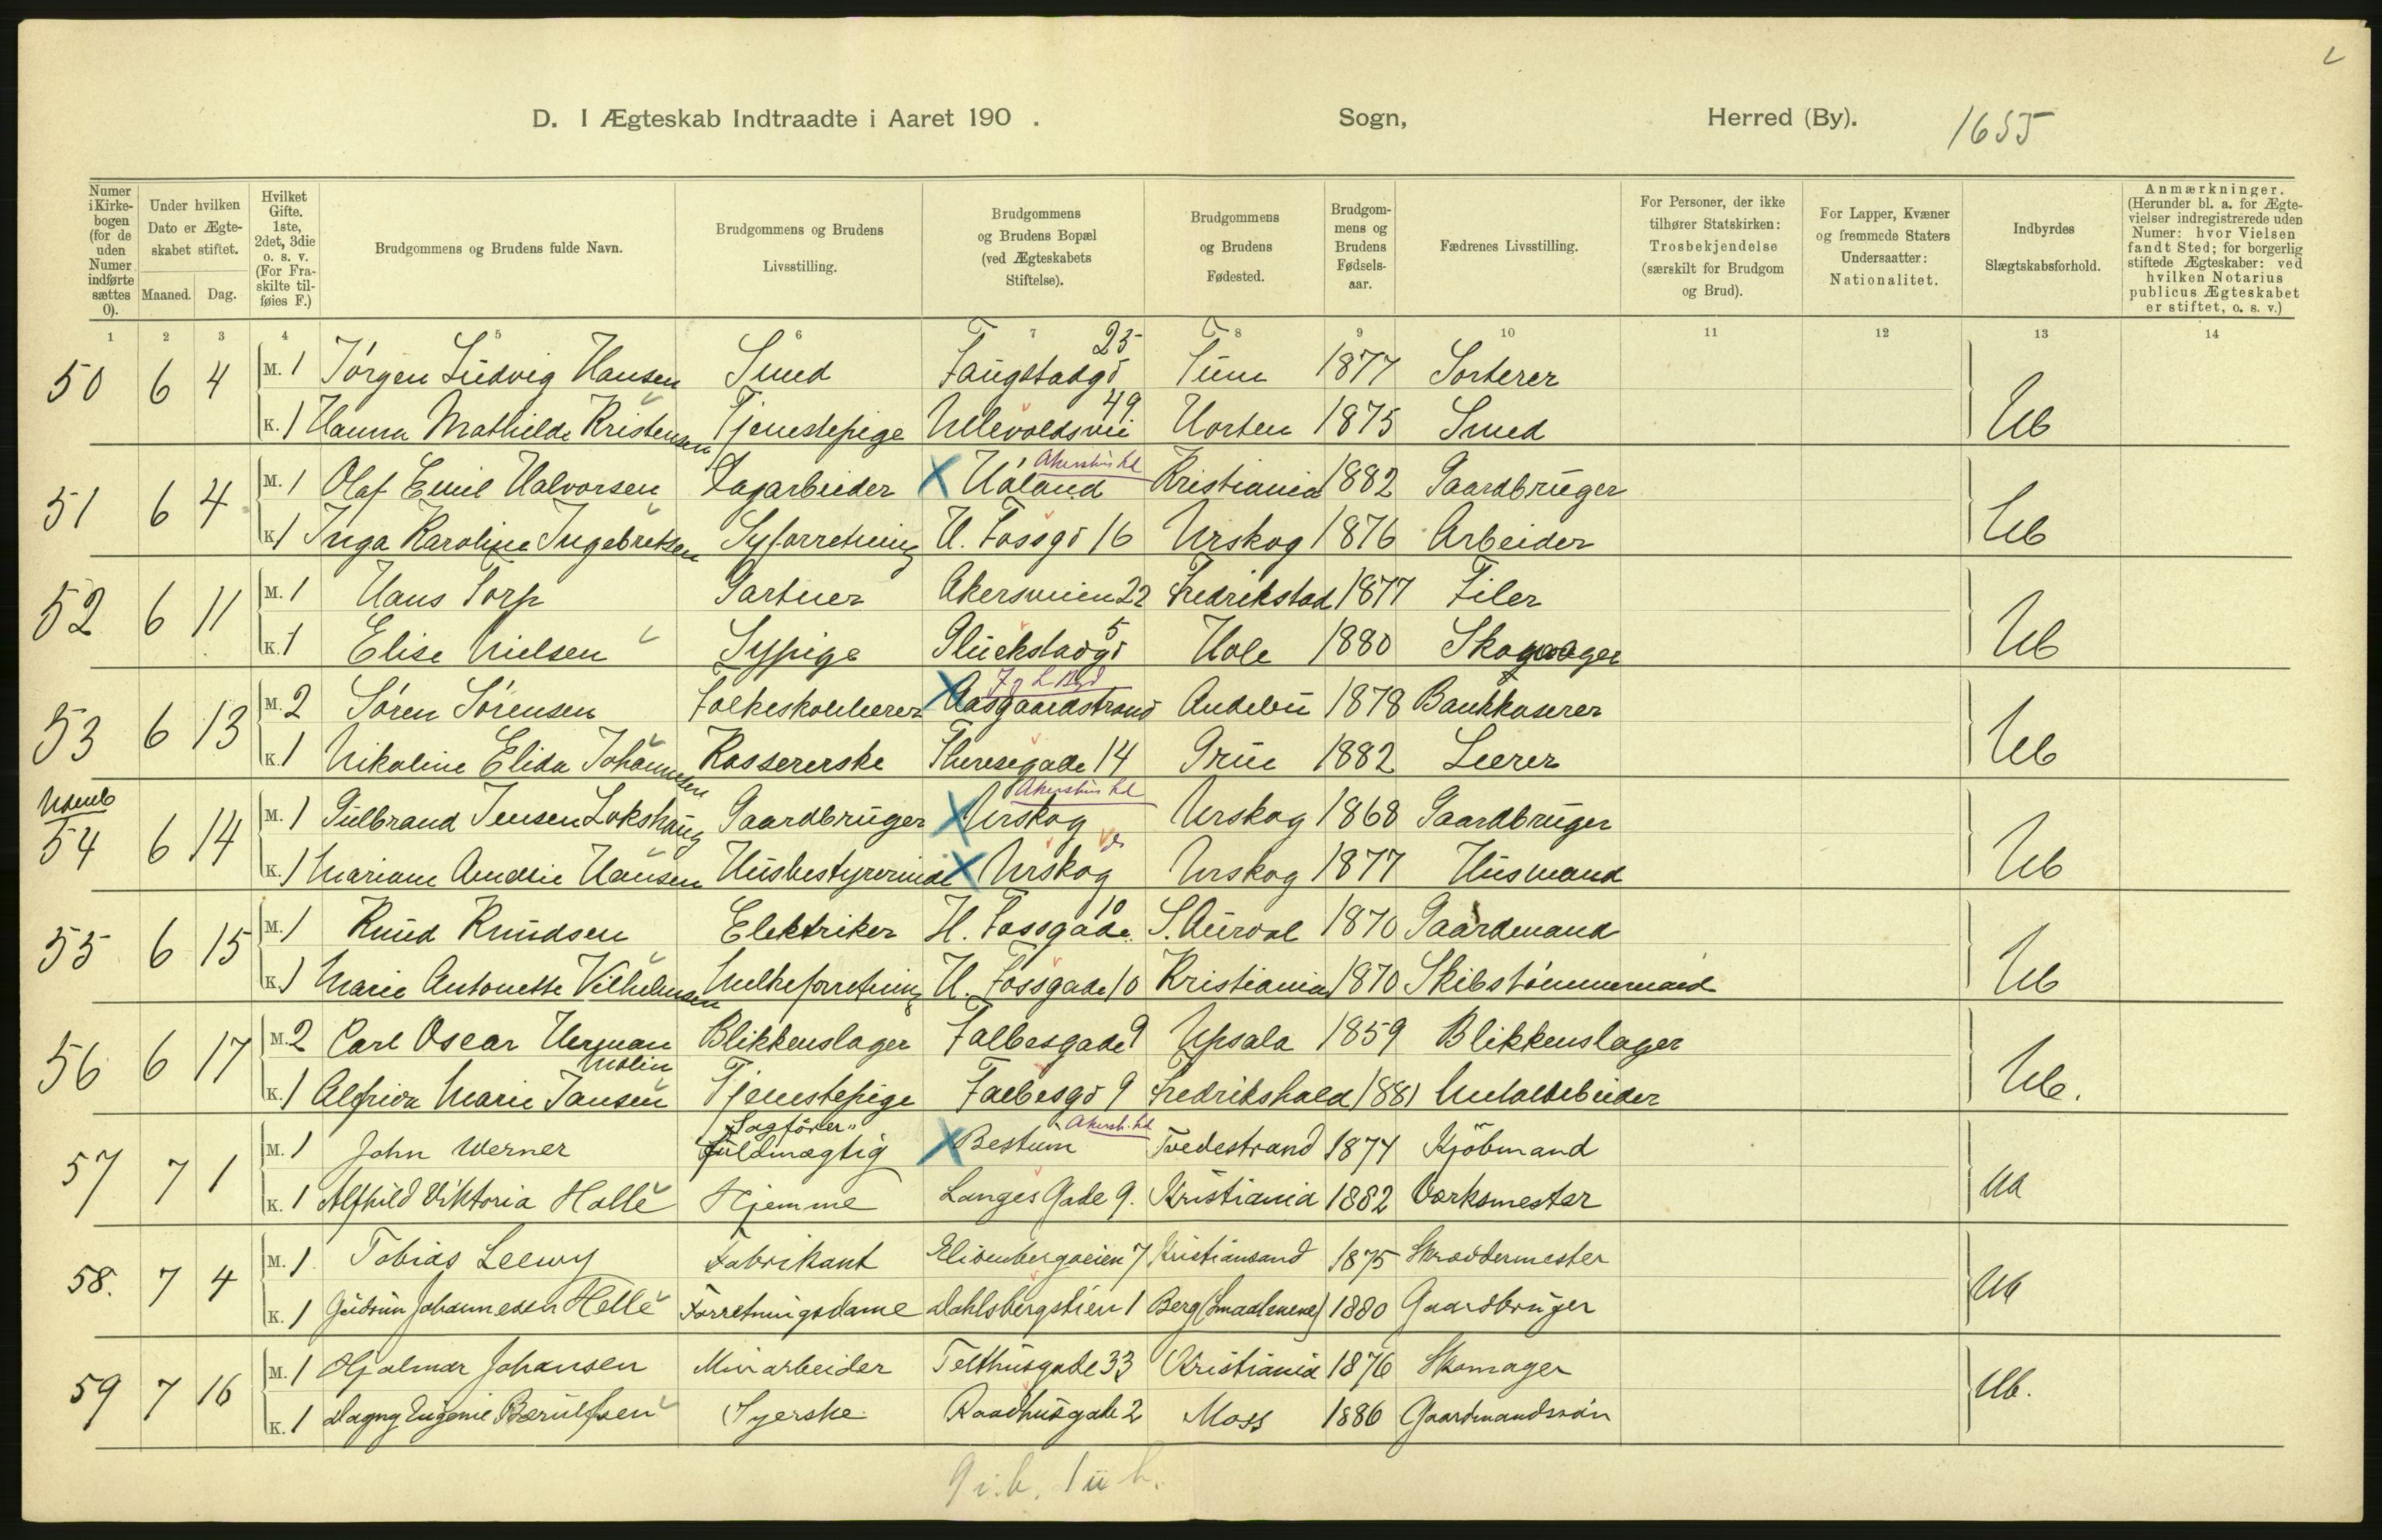 D. I Ægteskab Indtraadte i Aaret 190 . Sogn, Herred (By). 1655
Numer i Kirkebogen (for de uden Numer indførte sættes 0).
Under hvilken Dato er Ægteskabet stiftet.
Maaned. Dag.
Hvilket Gifte. 1ste, 2det, 3die o. s. v. (For Fraskilte tilføies F.)
Brudgommens og Brudens fulde Navn.
Brudgommens og Brudens Livsstilling.
Brudgommens og Brudens Bopæl (ved Ægteskabets Stiftelse).
Brudgommens og Brudens Fødested.
Brudgommens og Brudens Fødselsaar.
Fædrenes Livsstilling.
For Personer, der ikke tilhører Statskirken: Trosbekjendelse (særskilt for Brudgom og Brud).
For Lapper, Kvæner og fremmede Staters Undersaatter: Nationalitet.
Indbyrdes Slægtskabsforhold.
Anmærkninger. (Herunder bl. a. for Ægtevielser indregistrerede uden Numer: hvor Vielsen fandt Sted; for borgerlig stiftede Ægteskaber: ved hvilken Notarius publicus Ægteskabet er stiftet, o. s. v.)
1 2 3 4 5 6 7 8 9 10 11 12 13 14
50 6 4 M. 1 Jörgen Ludvig Hansen Smed Faugstadgd 25 Tune 1877 Sorterer
K. 1 Hanna Mathilde Kristensen Tjenestepige Ullevoldsvei 49 Horten 1875 Smed Ub
51 6 4 M. 1 Olaf Emil Halvorsen Lagarbeider Akershus Höland Kristiania 1882 Gaardbruger
K. 1 Inga Karoline Ingebretsen Syforretning U. Fossgd 16 Urskog 1876 Arbeider Ub
52 6 11 M. 1 Hans Torp Gartner Akersveien 22 Fredrikstad 1877 Filer
K. 1 Elise Nielsen Sypige Glückstadgd 5 Hole 1880 Ub
53 6 13 M. 2 Sören Sörensen Folkeskolelærer Aasgaardstrand Andebu 1878 Bankkaserer
K. 1 Nikoline Elida Johannesen Kassererske Theresegade 14 Grue 1882 Lærer Ub
54 6 14 M. 1 Gulbrand Jensen Lokshaug Gaardbruger Akershus Urskog Urskog 1868 Gaardbruger
K. 1 Mariane Amalie Hansen Husbestyrerinde Urskog Urskog 1877 Husmand Ub
55 6 15 M. 1 Knud Knudsen Elektriker U. Fossgade 10 S. Aurdal 1870 Gaardmand
K. 1 Marie Antonette Vilhelmsen Melkeforretning U. Fossgade 10 Kristiania 1870 Skibstömmermand Ub
56 6 17 M. 2 Carl Oscar Herman Molin Blikkenslager Falbesgade 9 Upsala 1859 Blikkenslager
K. 1 Alfrida Marie Jansen Tjenestepige Falbesgd 9 Fredrikshald 1881 Ub.
57 7 1 M. 1 John Werner Sagförer" fuldmægtig Akersh. Bestum Tvedestrand 1874 Kjöbmand
K. 1 Alfhild Viktoria Holle Hjemme Langes Gade 9. Kristiania 1882 Værksmester Ub
58. 7 4 M. 1 Tobias Leewy Fabrikant Elisenbergveien 7 Kristiansand 1875 Skræddermester
K. 1 Gudrun Johannesen Helle Forretningsdame Dahlsbergstien 1 Berg (Smaalenene) 1880 Gaardbruger Ub
59 7 16 M. 1 Hjalmar Johansen Murarbeider Telthusgade 33 Kristiania 1876 Skomager
K. 1 Dagny Eugenie Bærulfsen Syerske Raadhusgade 2 Moss 1886 Gaardmandssön Ub.
9 i. b. 1 u b.